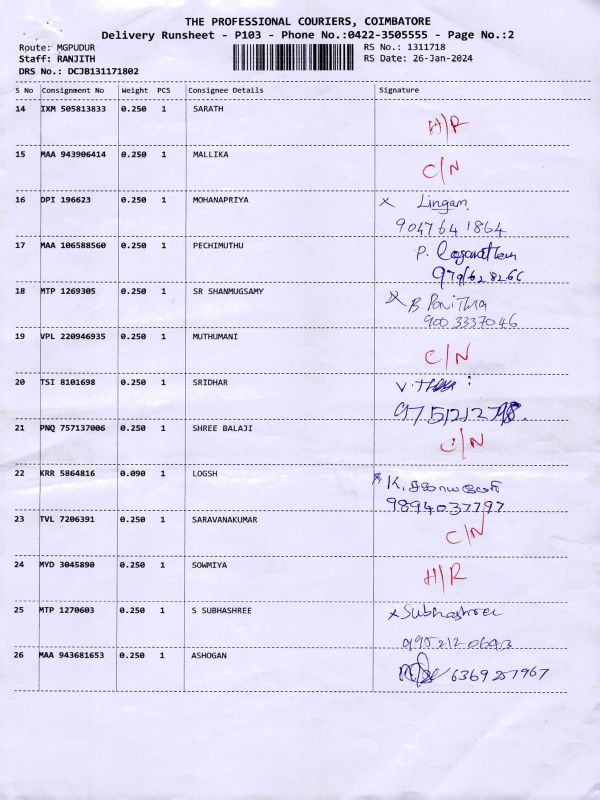 THE PROFESSIONAL COURIERS, COIMBATORE
Delivery Runsheet - P103 - Phone No.:0422-3505555 - Page No.:2
Route: MGPUDUR RS No.: 1311718
Staff: RANJITH RS Date: 26-Jan-2024
DRS No.: DCJB131171802
S No Consignment No Weight PCS Consignee Details Signature
14 IXM 505813833 0.250 1 SARATH H/R
15 MAA 943906414 0.250 1 MALLIKA C/N
16 DPI 196623 0.250 1 MOHANAPRIYA x Lingam
9047641864
17 MAA 106588560 0.250 1 PECHIMUTHU P.
18 MTP 1269305 0.250 1 SR SHANMUGSAMY x B Panitha
9003337046
19 VPL 220946935 0.250 1 MUTHUMANI C/N
20 TSI 8101698 0.250 1 SRIDHAR
21 PNQ 757137006 0.250 1 SHREE BALAJI C/N
22 KRR 5864816 0.090 1 LOGSH x K.
9894037797
23 TVL 7206391 0.250 1 SARAVANAKUMAR C/N
24 MYD 3045890 0.250 1 SOWMIYA H/R
25 MTP 1270603 0.250 1 S SUBHASHREE x Subhashree
26 MAA 943681653 0.250 1 ASHOGAN 6369257967